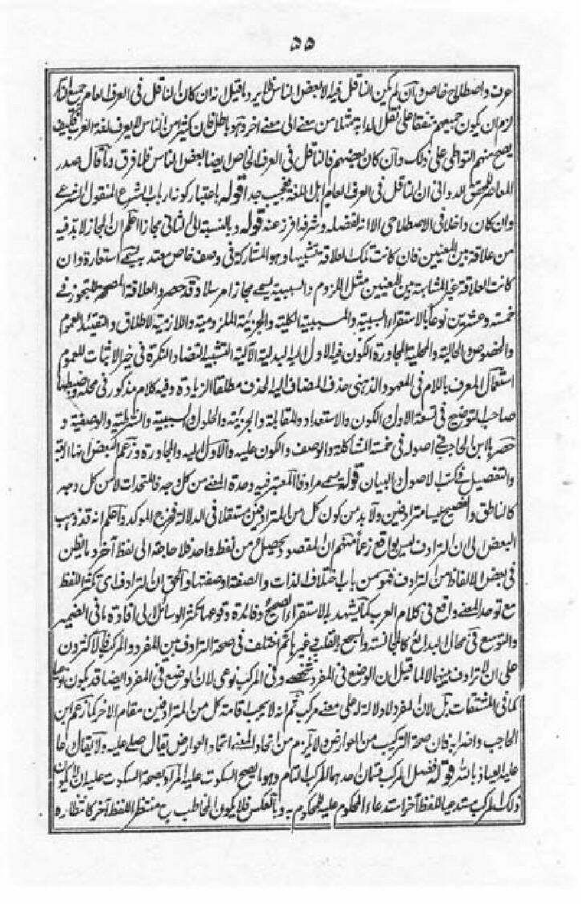 ۵۵
عرف واصطلاح خاص وآن لم يكن الناقل فيه الا بعض الناس فلا يرد ما قيل انه ان كان الناقل فى العرف العام جميع
لزم ان يكون جميعهم متفقا على نقل الدابة مثلا من معنے الى معنے اخر وهو باطل فان كثيرا من الناس لا يعرف لغة العرب فكيف
يصح منهم التواطى على ذلك وآن كان بعضهم فالناقل فى العرف الخاص ايضا بعض الناس فلا فرق وما قال صدر
المعاصر للمحقق الدوانى ان الناقل فى العرف العام اهل اللغة فعجيب جدا قوله باعتبار كونه ارباب الشرع المنقول الشرعے
وان كان داخلا فى الاصطلاحى الا انه لفضله وشرفه افرز عنه قوله وبالنسبة الى الثانى مجازا اعلم ان المجاز لا بد فيه
من علاقة بين المعنيين فان كانت تلك العلاقة تشبيها وهو المشاركة فى وصف خاص معتد به يسمے استعارة وان
كانت العلاقة غير المشابهة بين المعنيين مثل اللزوم والسببية يسمے مجازا مرسلا وقد حصروا العلاقة المصححة للتجوز فے
خمسة وعشرين نوعا بالاستقراء السببية والمسببية الكلية والجزئية الملزومية واللازمية الاطلاق والتقييد العموم
والخصوص الحالية والمحلية المجاورة الكون فيه الاول اليه البدلية الآلية التشبيه التضاد النكرة فى خبر الاثبات للعموم
استعمال المعرف باللام فى المعهود الذهنى حذف المضاف اليه الحذف مطلقا الزيادة وفيه كلام مذكور فى محله وضبطها
صاحب التوضيح فى تسعة الاول الكون والاستعداد والمقابلة والجزئية والحلول والسببية والشرطية والوصفية و
حصرها ابن الحاجب فى اصوله فى خمسة المشاكلة والوصف والكون عليه والاول اليه والمجاورة وزعم البعض
والتفصيل فى كتب الاصول البيان قوله يسمے مرادفا المعتبر فيه وحدة المعنے من كل جهة فالمتحدات لا من كل وجه
كالناطق والفصيح ليسا مترادفين ولا بد من كون كل من المترادفين مستقلا فى الدلالة فخرج الموكد واعلم انه قد ذهب
البعض الى ان الترادف ليس بواقع زعما منهم ان المقصود يحصل من لفظ واحد فلا حاجة الى لفظ آخر وما يظن
فى بعض الالفاظ من الترادف فهو من باب اختلاف الذات والصفة او صفتها والحق ان الترادف اى تكثر اللفظ
مع توحد المعنے واقع فى كلام العرب كما يشهد به الاستقراء الصحيح وفائدة وقوعها تكثر الوسائل الى افادة ما فى الضمير
والتوسع فى محال البدائع كالمجانسة والسجع والقلب وغيرها ثم اختلف فى صحة الترادف بين المفرد والمركب فالاكثرون
على ان لا ترادف بينهما لا لما قيل ان الوضع فى المفرد شخصے وفى المركب نوعى لان الوضع فى المفرد ايضا قد يكون نوعيا
كما فى المشتقات بل لان المفرد لا دلالة له على معنے مركب ثم انه لا يجب اقامة كل من المترادفين مقام الآخر كما زعم ابن
الحاجب واضرابه فان صحة التركيب من العوارض ولا يلزم من اتحاد المعنے اتحاد العوارض يقال صلى عليه ولا يقال دعا
عليه العياذ بالله قوله فصل المركب قسمان احدهما المركب التام وهو ما يصح السكوت عليه المراد بصحة السكوت عليه ان لا يكون
ذلك المركب مستدعيا للفظ آخر استدعاء المحكوم عليه للمحكوم به وبالعكس فلا يكون المخاطب به منتظرا للفظ آخر كانتظاره